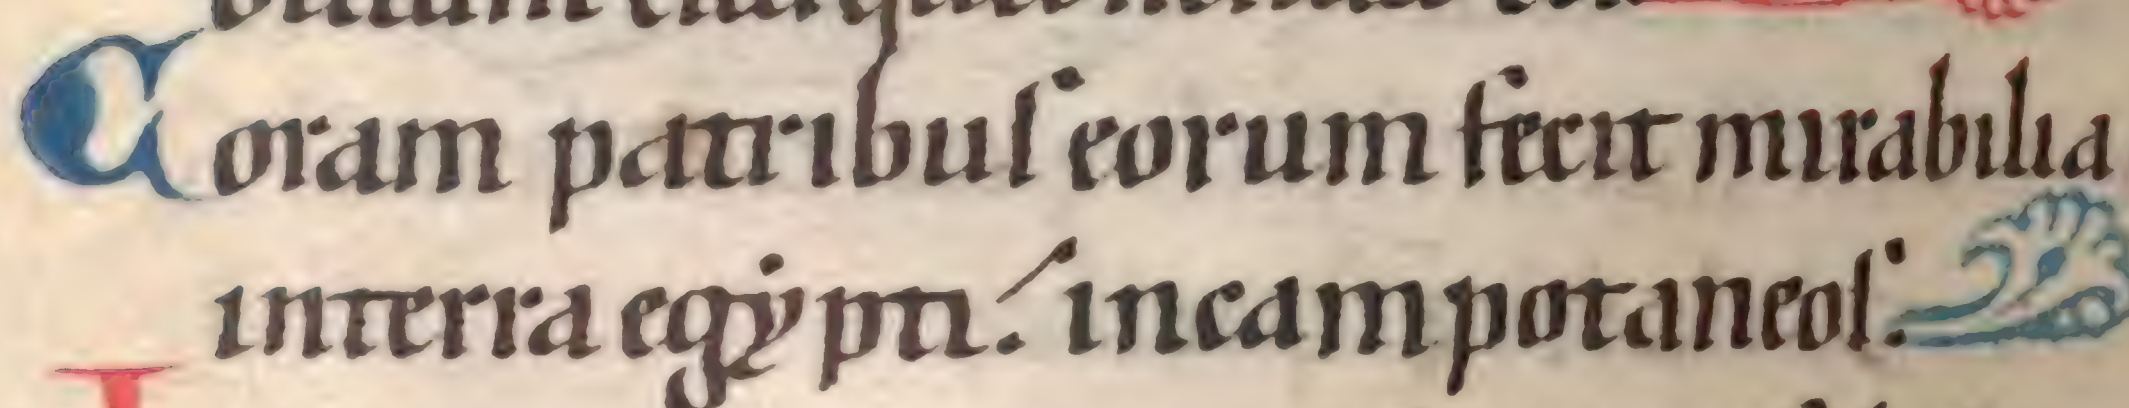 Coram patribuſ eorum fecit mirabilia
interra egẏpti. incampotaneoſ.